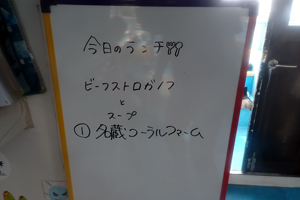 今日のランチ
ビーフストロガノフ
と
スープ
① 名蔵コーラルファーム